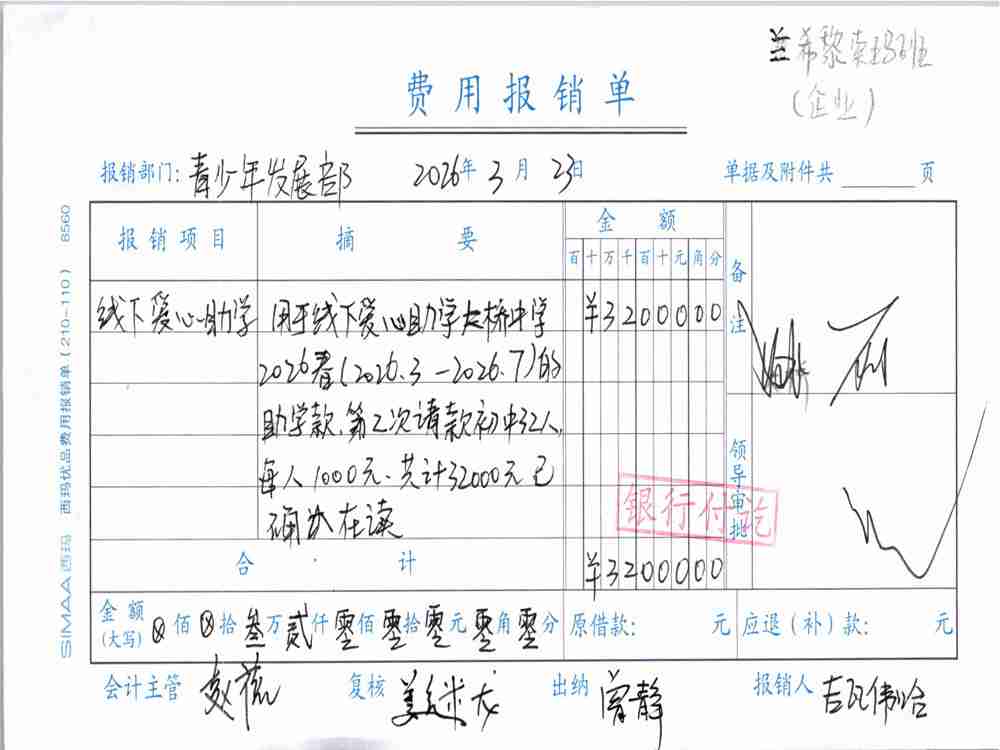 希黎索玛班
(企业)
费用报销单
报销部门: 青少年发展部 2026年 3月 23日 单据及附件共 页
报销项目 摘 要 金 额 备注
百 十 万 千 百 十 元 角 分
线下爱心助学 用于线下爱心助学大桥中学 ¥3200000
2026春(2026.3-2026.7)的
助学款.第二次请款初中32人,
每人1000元、共计32000元已
确认在读
领导审批
银行付讫
合 计 ¥3200000
金额(大写) ⊗佰⊗拾叁万贰仟零佰零拾零元零角零分 原借款: 元 应退(补)款: 元
会计主管 复核 出纳 曾静 报销人 吉瓦伟哈
SIMAA西玛 西玛优品费用报销单(210-110) 6560